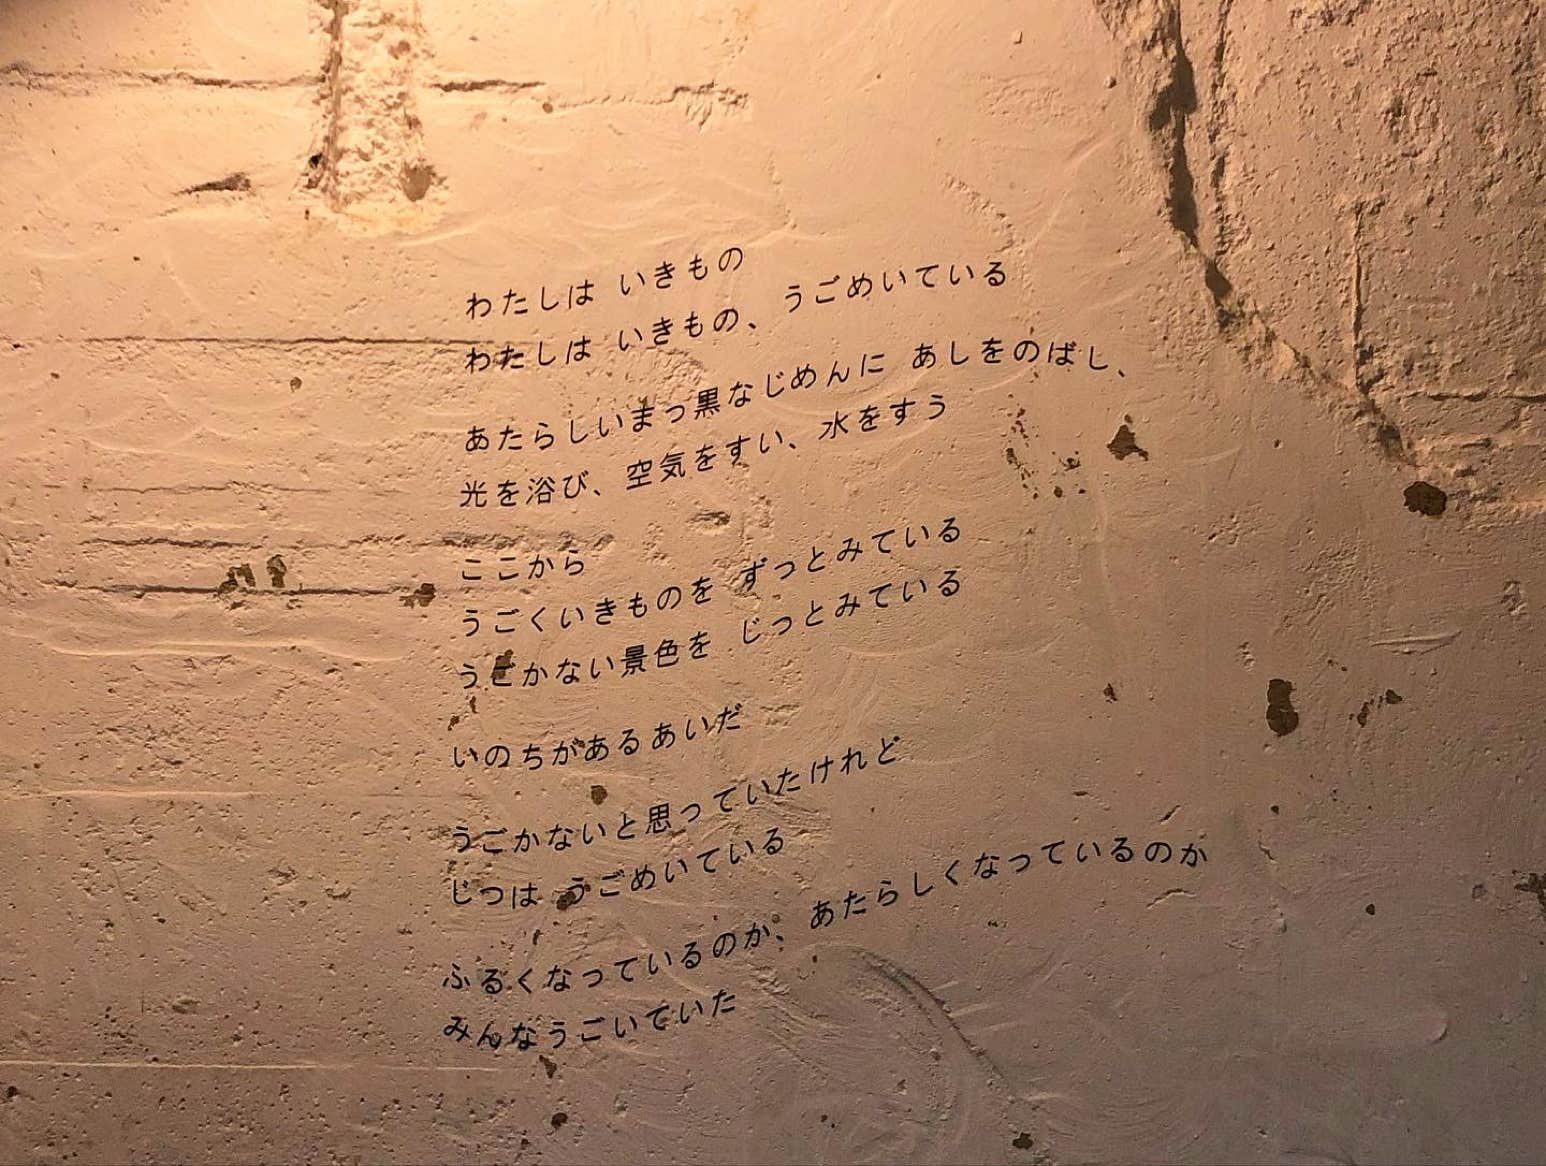 わたしは いきもの
わたしは いきもの、うごめいている
あたらしいまっ黒なじめんに あしをのばし、
光を浴び、空気をすい、水をすう
ここから
うごくいきものを ずっとみている
うごかない景色を じっとみている
いのちがあるあいだ
うごかないと思っていたけれど
じつは うごめいている
ふるくなっているのか、あたらしくなっているのか
みんなうごいていた